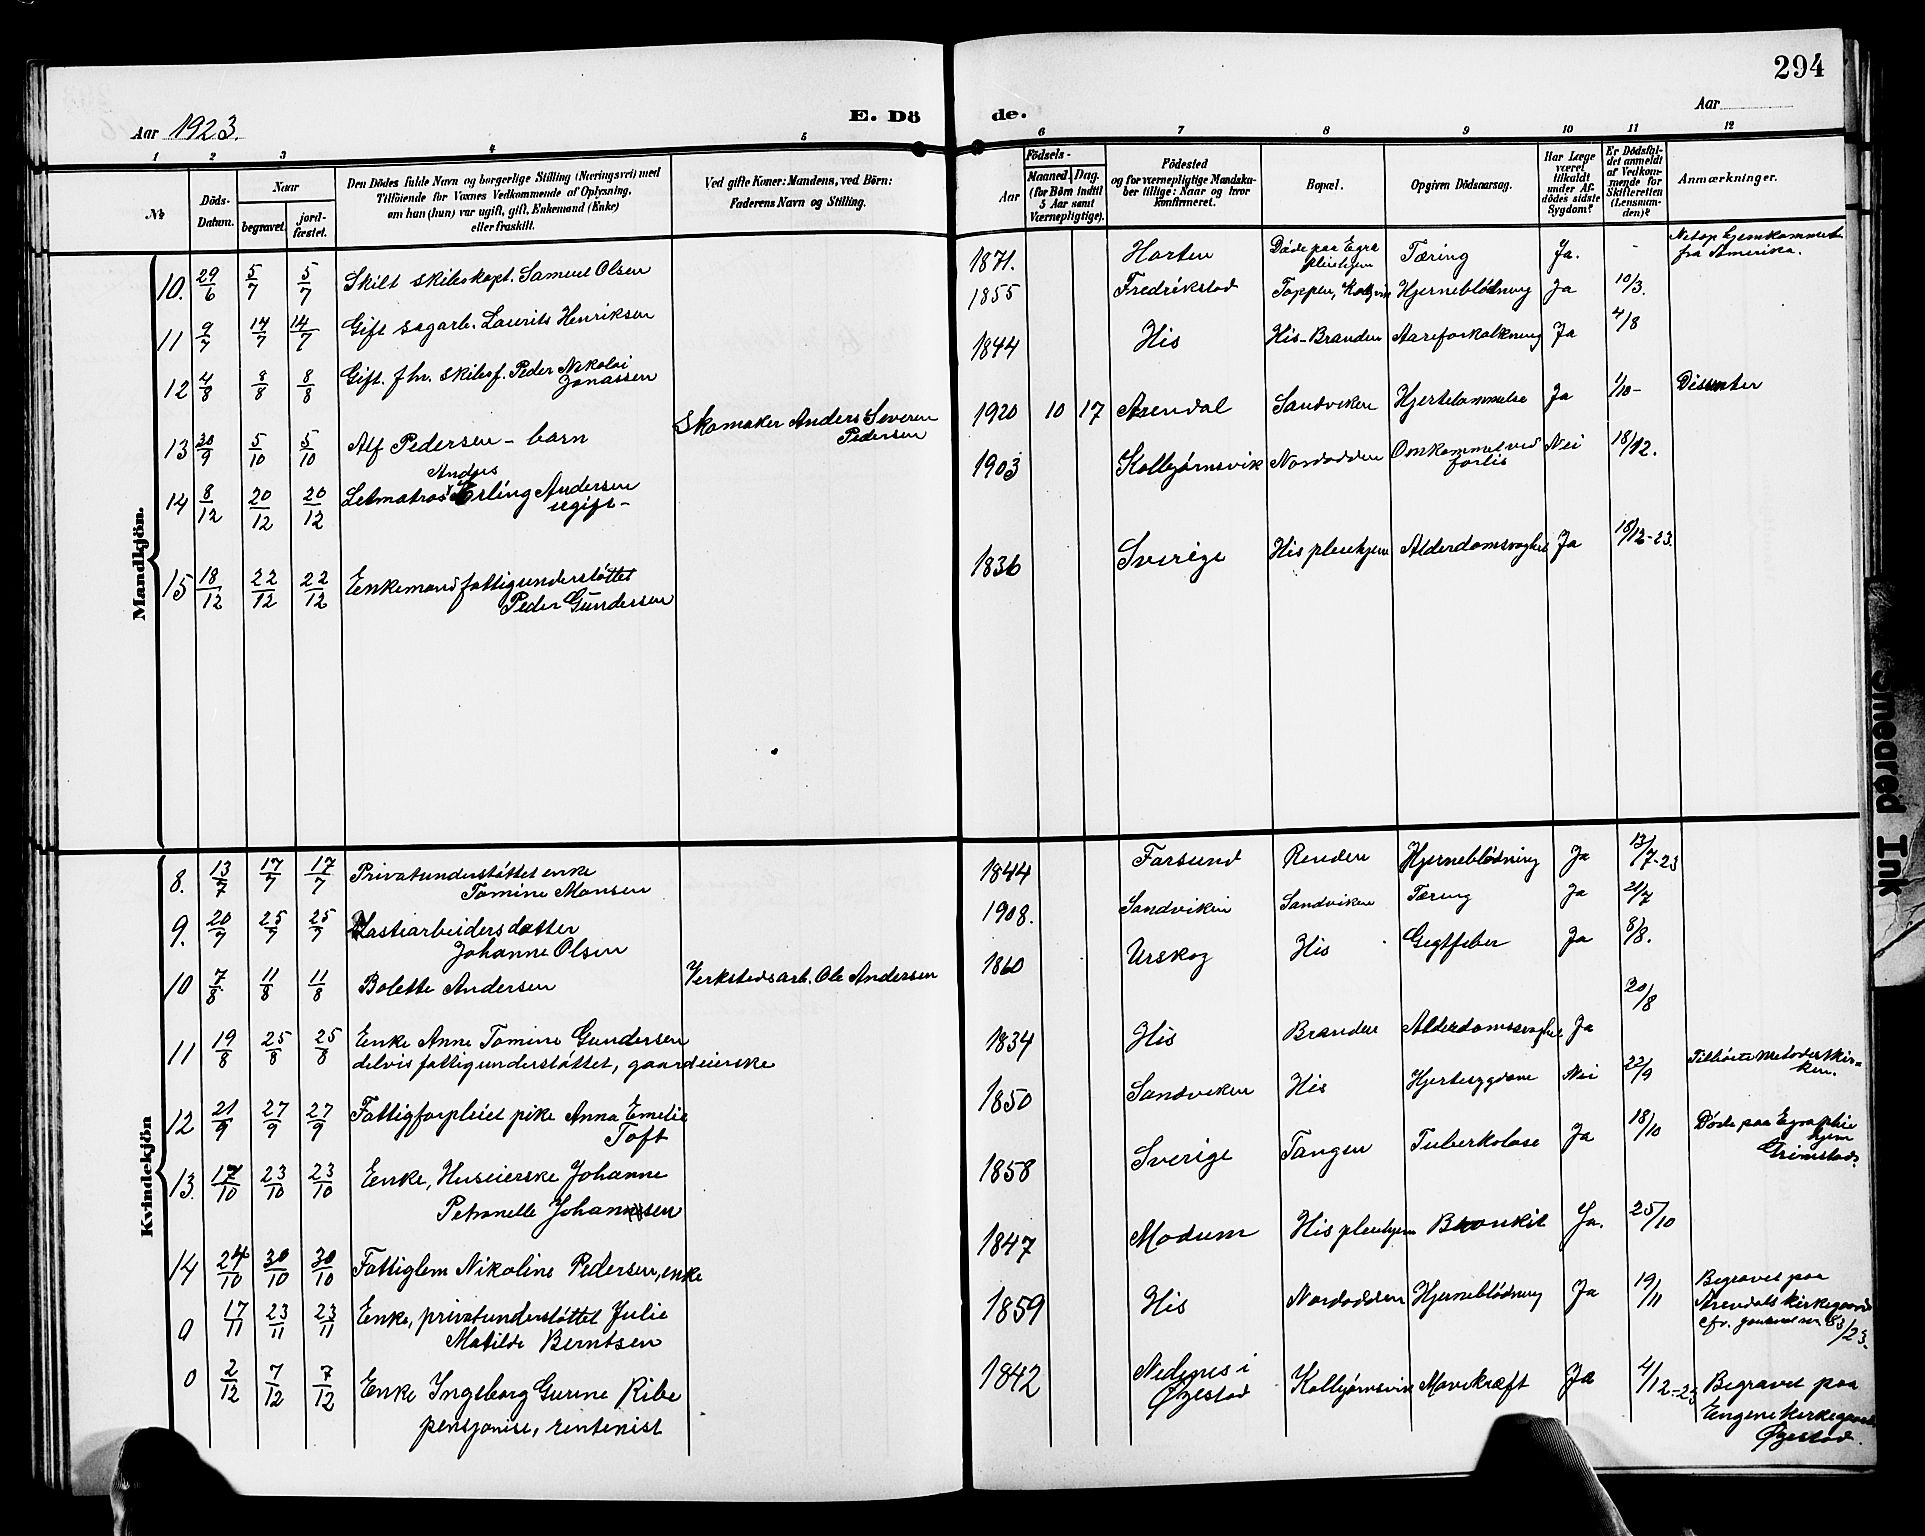 294
Aar 1923.
E. Dö de.
Aar
1 2 3 4 5 6 7 8 9 10 11 12
№
Döds-Datum.
Naar
begravet.
jord-fæstet.
Den Dödes fulde Navn og borgerlige Stilling (Næringsvei) med
Tilföiende for Voxnes Vedkommende af Oplysning,
om han (hun) var ugift, gift, Enkemand (Enke)
eller fraskilt.
Ved gifte Koner: Mandens, ved Börn:
Faderens Navn og Stilling.
Födsels-
Aar
Maaned. Dag.
(for Börn indtil
5 Aar samt
Værnepligtige).
Födested
og for værnepligtige Mandska-
ber tillige: Naar og hvor
konfirmeret.
Bopæl.
Opgiven Dödsaarsag.
Har Læge
været
tilkaldt
under Af-
dödes sidste
Sygdom?
Er Dödsfal-
det anmeldt
af Vedkom-
mende for
Skifteretten
(Lensman-
den)?
Anmærkninger.
Mandkjön.
10. 29/6 5/7 5/7 Skilt skibskapt. Samuel Olsen 1871. Horten Døde paa Egra pleiehjem Tæring Ja. - Netop hjemkommet fra Amerika.
11 9/7 14/7 14/7 Gift sagarb. Laurits Henriksen 1855 Fredrikstad Toppen, Kolbjvik Hjerneblødning Ja 10/3.
12 4/8 8/8 8/8 Gift. fhv. skibsf. Peder Nikolai Jonassen 1844 His His-Branden Aareforkalkning Ja 4/8
13 30/9 5/10 5/10 Alf Pedersen - barn Skomaker Anders Severin Pedersen 1920 10 17 Arendal Sandviken Hjertelammelse Ja 1/10- Dissenter
14 8/12 20/12 20/12 Letmatros Anders Erling Andersen ugift- 1903 Kolbjørnsvik Nordodden Omkommet ved forlis Nei 18/12.
15 18/12 22/12 22/12 Enkemand fattigunderstøttet Peder Gundersen 1836 Sverige His pleiehjem Alderdomssvaghet Ja 18/12-23.
Kvindekjön
8. 13/7 17/7 17/7 Privatunderstøttet enke Tomine Monsen 1844 Farsund Renden Hjerneblødning Ja 13/7-23
9. 20/7 25/7 25/7 Lastearbeidersdatter Johanne Olsen 1908. Sandviken Sandviken Tæring Ja 21/7
10 7/8 11/8 11/8 Bolette Andersen Verkstedsarb. Ole Andersen 1860 Urskog His Gigtfeber Ja 8/8.
11 19/8 25/8 25/8 Enke Anne Tomine Gundersen delvis fattigunderstøttet, gaardeierske 1834 His Branden Alderdomssvaghet Ja 20/8
12 21/9 27/9 27/9 Fattigforpleiet pike Anna Emelie Toft 1850 Sandviken His Hjertesygdom Nei 22/9 Tilhørte Metodistkirken.
13. 17/10 23/10 23/10 Enke, Huseierske Johanne Petronelle Johannesen 1858 Sverige Tangen Tuberkolose Ja 18/10 Døde paa Egra pleiehjem Grimstad.
14 24/10 30/10 30/10 Fattiglem Nikoline Pedersen, enke 1847 Modum His pleiehjem Bronkit Ja. 25/10
0 17/11 23/11 23/11 Enke, privatunderstøttet Julie Matilde Berntsen 1859 His Nordodden Hjerneblødning Ja 19/11 Begravet paa Arendals kirkegaard cfr. 83/23.
0 2/12 7/12 7/12 Enke Ingeborg Gurine Ribe pensjonise, rentenist 1842 Nedenes i Øiestad Kolbjørnsvik Mavekræft Ja 4/12-23 Begravet paa Engene kirkegaard Øiestad.
Smeared Ink